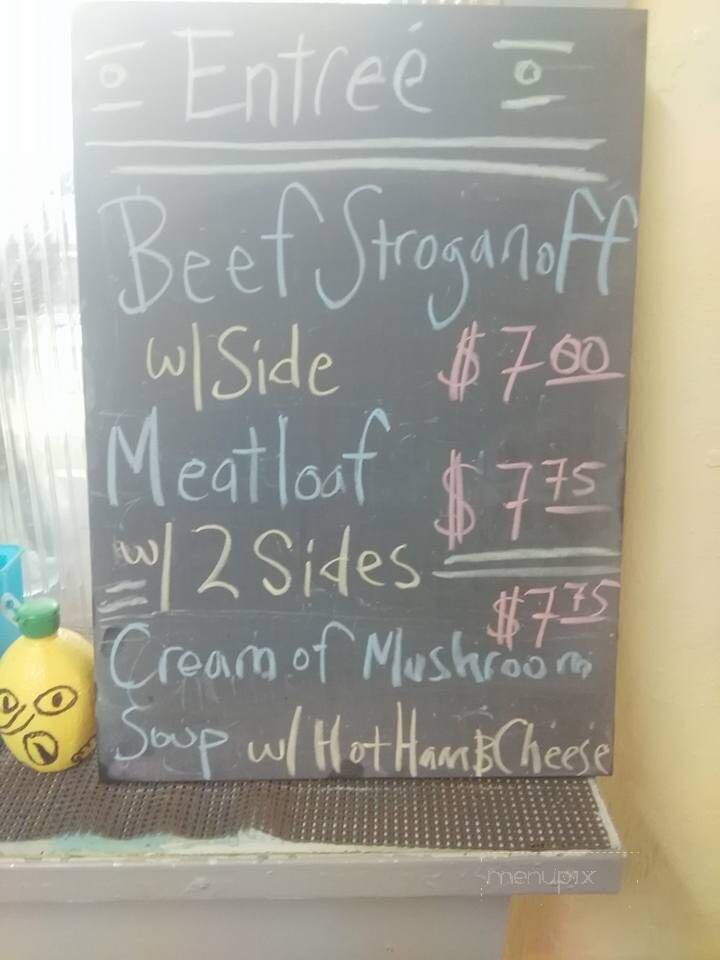 Entreé
Beef Stroganoff
w/Side $7.00
Meatloaf $7.75
w/2 Sides
$7.75
Cream of Mushroom
Soup w/HotHam&Cheese
menupix